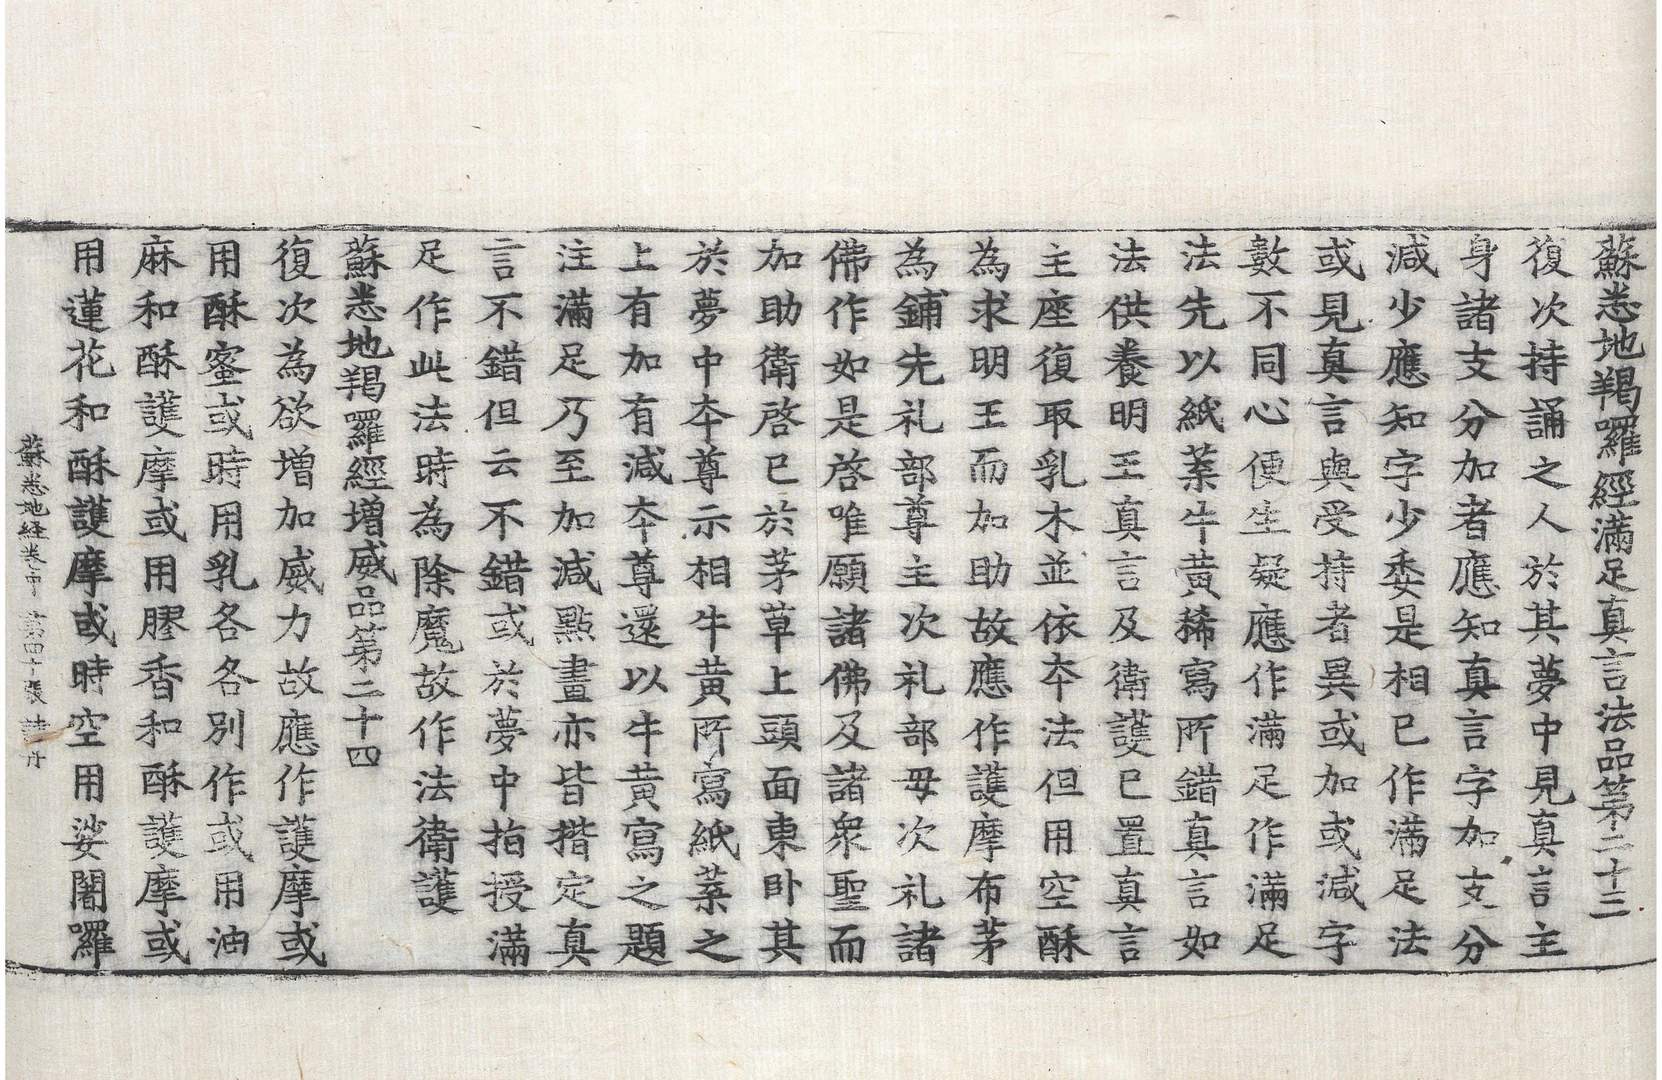 蘇悉地羯囉經滿足真言法品第二十三
復次持誦之人於其夢中見真言主
身諸支分加者應知真言字加支分
減少應知字少委是相已作滿足法
或見真言與受持者異或加或減字
數不同心便生疑應作滿足作滿足
法先以紙葉牛黃稀寫所錯真言如
法供養明王真言及衛護已置真言
主座復取乳木並依夲法但用空酥
為求明王而加助故應作護摩布茅
為鋪先礼部尊主次礼部母次礼諸
佛作如是啓唯願諸佛及諸衆聖而
加助衛啓已於茅草上頭面東卧其
於夢中夲尊示相牛黄所寫紙葉之
上有加有減夲尊還以牛黄寫之題
注滿足乃至加減點畫亦皆揩定真
言不錯但云不錯或於夢中指授滿
足作此法時為除魔故作法衛護
蘇悉地羯羅經增威品第二十四
復次為欲增加威力故應作護摩或
用酥蜜或時用乳各各別作或用油
麻和酥護摩或用膠香和酥護摩或
用蓮花和酥護摩或時空用娑闍囉
蘇悉地経卷中 第四十張 詩丹